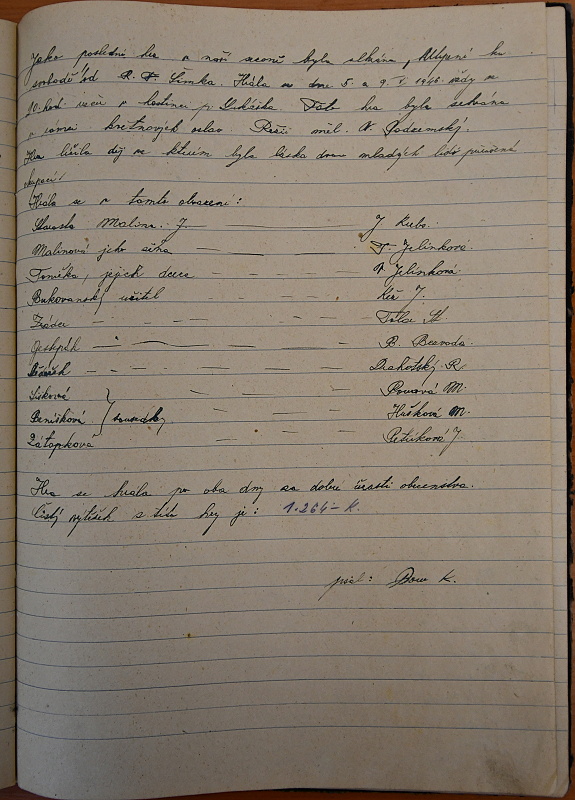 Jako poslední hra v naší seconě byla sehrána, Utrpení ku
svobodě od R. F. Simka. Hrála se dne 5. a 9. V. 1946 vždy ve
20. hod. večer v hostinci p. Lukáška. Tato hra byla sehrána
v rámci květnových oslav. Režii měl. V. Podzemský.
Hra líčila děj ve kterém byla láska dvou mladých lidí
okupací.
Hrála se v tomto obsazení:
Starosta Malina: J. — J. Kubo.
Malinová jeho žena — — — Jelínková.
Tonička, jejich dcera — — — Jelínková
Bukovanský učitel — — — J.
Zrádce — — — — — Fiala St.
— — — B. Bezvoda.
— — — — Drahotský R.
Sisková — — — M.
Benišková } sousedky — — Hašková M.
Zátopková — — — Petříková J.
Hra se hrála po oba dny za dobré účasti obecenstva.
Čistý výtěžek z této hry je: 1.264 – K.
psal: K.